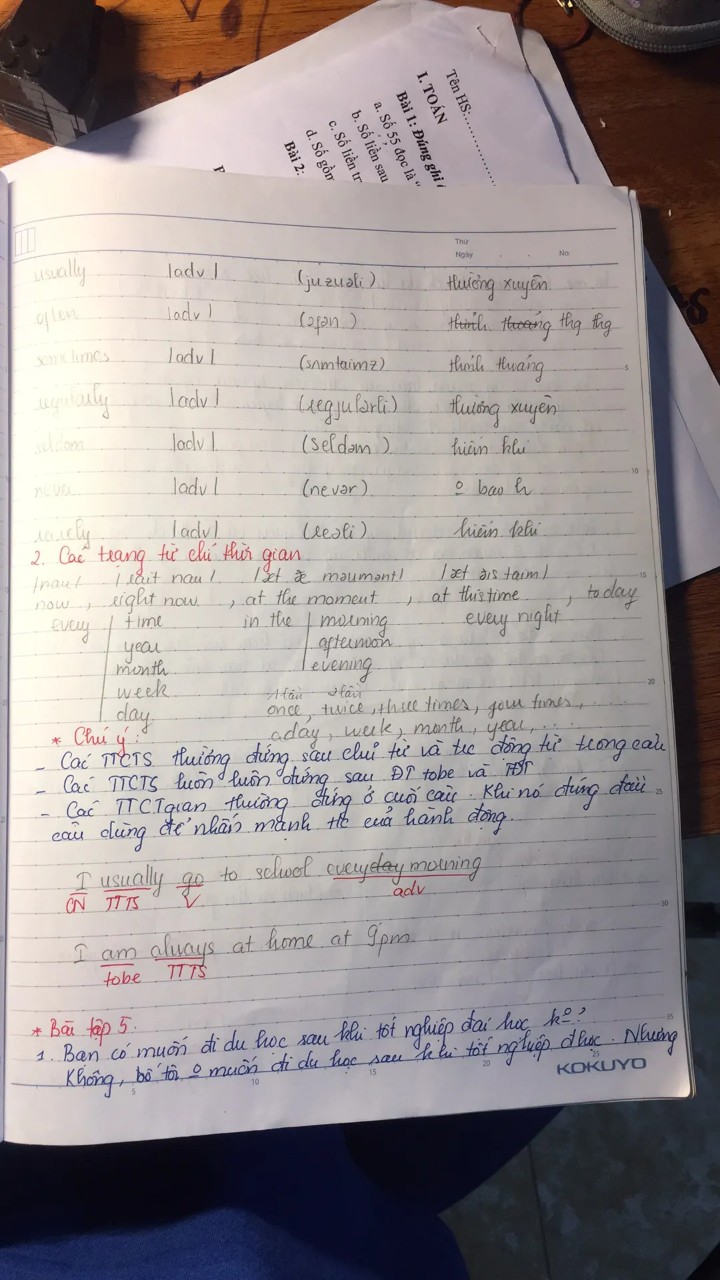 Tên HS:
I. TOÁN
Bài 1: Đúng ghi
a. Số 55 đọc là
b. Số liền sau
c. Số liền tr
d. Số gồm
Bài 2:
Thứ
Ngày . . No.
usually |adv| (juʒuəli) thường xuyên
often |adv| (ɔfən) thỉnh thoảng thg thg
sometimes |adv| (sʌmtaimz) thỉnh thoảng
regularly |adv| (regjulərli) thường xuyên
seldom |adv| (seldəm) hiếm khi
never |adv| (nevər) o bao h
rarely |adv| (reəli) hiếm khi
2. Các trạng từ chỉ thời gian
/nau/ /rait nau/ /æt ðə məumənt/ /æt ðis taim/
now, right now, at the moment, at this time, today
every time in the morning every night
year afternoon
month evening
week 1 lần 2 lần
day once, twice, three times, four times, ....
* Chú ý: a day, week, month, year, ...
- Các TTCTS thường đứng sau chủ từ và trc động từ trong câu
- Các TTCTS luôn luôn đứng sau ĐT tobe và TĐT
- Các TTCTgian thường đứng ở cuối câu. Khi nó đứng đầu
câu dùng để nhấn mạnh tg của hành động.
I usually go to school everyday morning
CN TTTS V adv
I am always at home at 9pm.
tobe TTTS
* Bài tập 5.
1. Bạn có muốn đi du học sau khi tốt nghiệp đại học ko?
Không, bố tôi o muốn đi du học sau khi tốt nghiệp đhọc. Nhưng
KOKUYO